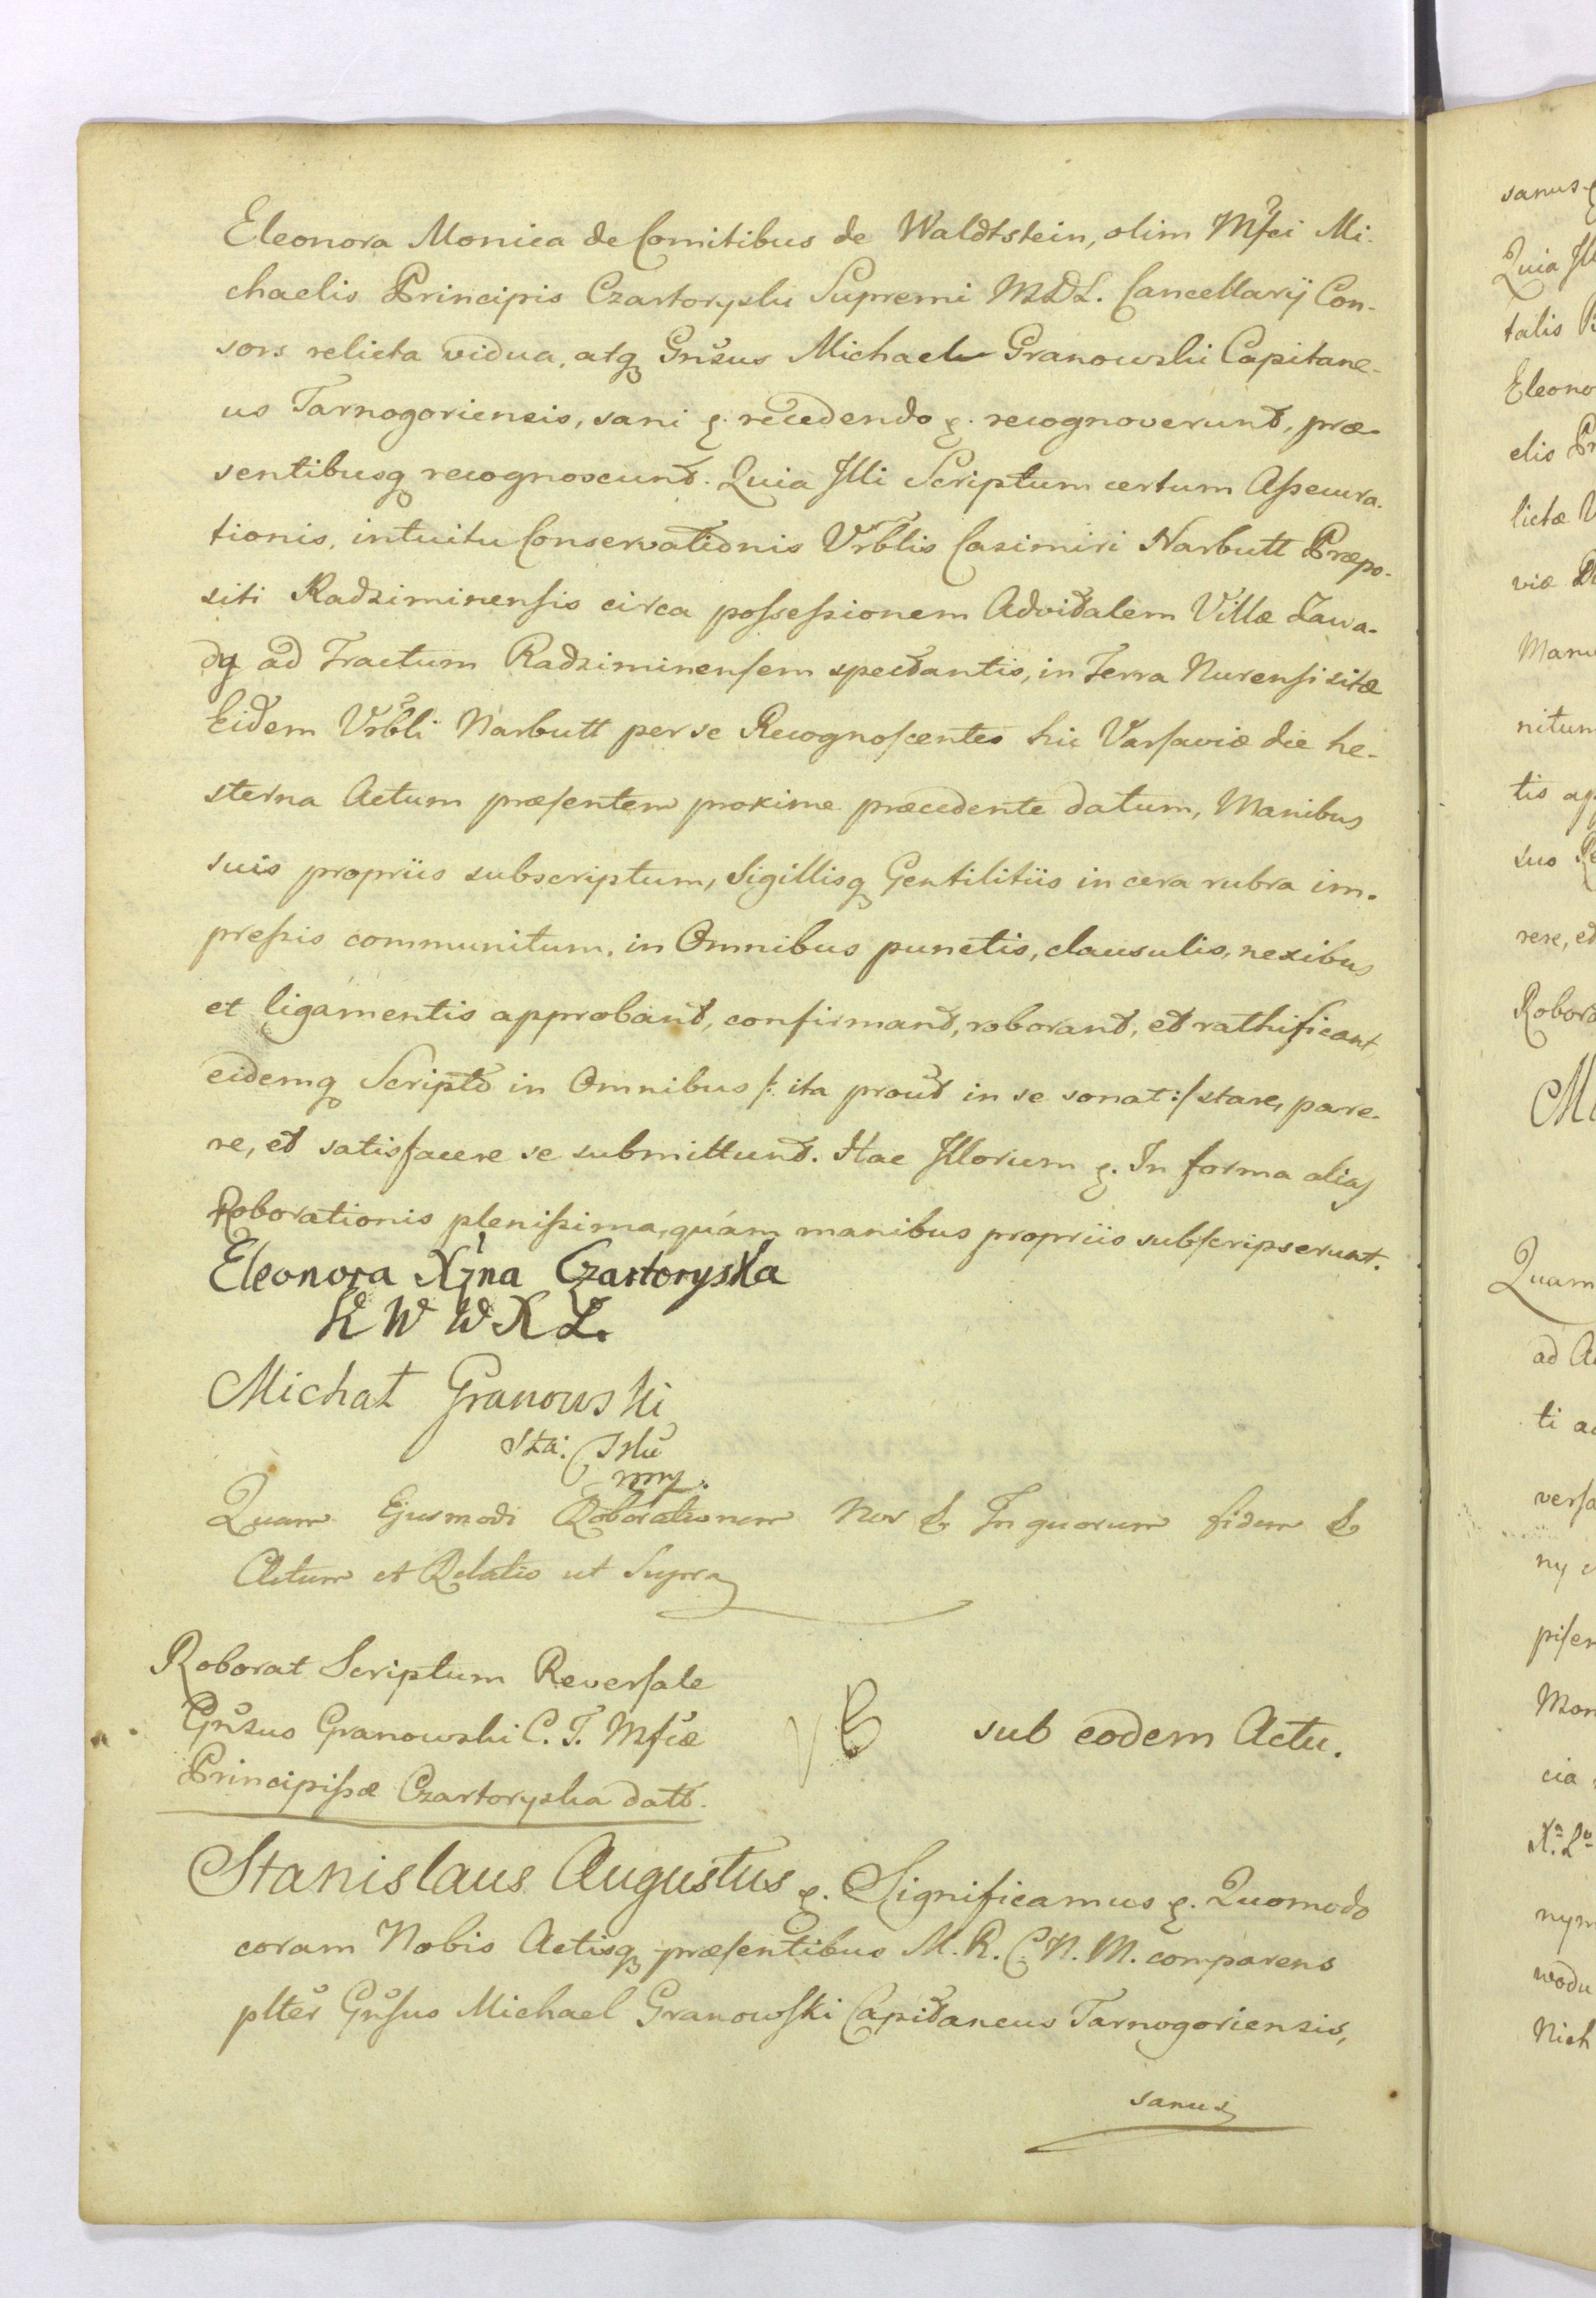 Eleonora Monica de Comitibus de Waldtstein, olim Mfci Mi-
chaelis Principis Czartoryski Supremi M.D.L. Cancellarij Con-
sors relicta vidua, atq Gnsus Michael Granowski Capitane-
us Tarnogoriensis, sani &. recedendo &. recognoverunt, præ-
sentibusq recognoscunt. Quia Illi Scriptum certum Assecura-
tionis, intuitu Conservationis Vrblis Casimiri Narbutt Præpo-
siti Radziminensis circa possessionem Advitalem Villæ Zawa-
dy ad Tractum Radziminensem spectantis, in Terra Nurensi sitæ
Eidem Vrbli Narbutt per se Recognoscentes hic Varsaviæ die he-
sterna Actum præsentem proxime præcedente datum, Manibus
suis propriis subscriptum, Sigillisq Gentilitiis in cera rubra im-
pressis communitum, in Omnibus punctis, clausulis, nexibus
et ligamentis approbant, confirmant, roborant, et rathificant,
eidemq Scripto in Omnibus /: ita prout in se sonat :/ stare, pare-
re, et satisfacere se submittunt. Hac Illorum &. In forma alias
Roborationis plenissima, quám manibus propriis subscripserunt.
Eleonora Xżna Czartoryska
K W W X L.
Michał Granowski
Sta:
mp.
Quam Ejusmodi Roborationem Nos & In quorum fidem &
Actum et Relatio ut Supra
Roborat Scriptum Reversale
Gnsus Granowski C. T. Mfcæ
Principissæ Czartoryska datt.
sub eodem Actu.
Stanislaus Augustus &. Significamus &. Quomodo
coram Nobis Actisq præsentibus M. R. C. N. M. comparens
plter Gnsus Michael Granowski Capitaneus Tarnogoriensis,
sanus
sanus &
Quia Ill
talis
Eleono
elis Pr
lictæ V
viæ
Manu
nitum
tis ap
suo Re
rere, et
Robora
Mi
Quam
ad A
ti a
versa
ny
piser
Mon
cia
X. L
nym
wodu
Nich